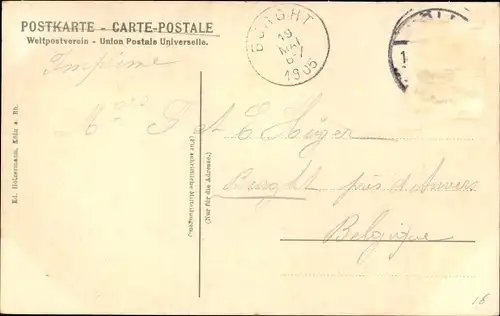 POSTKARTE - CARTE-POSTALE
Weltpostverein - Union Postale Universelle.
Imprimé
BURGHT
19
MAI
6-7
1905
(Für schriftliche Mitteilungen)
(Nur für die Adresse.)
Ed. Holzermann, Köln a. Rh.
Burght près d'Anvers
Belgique
16